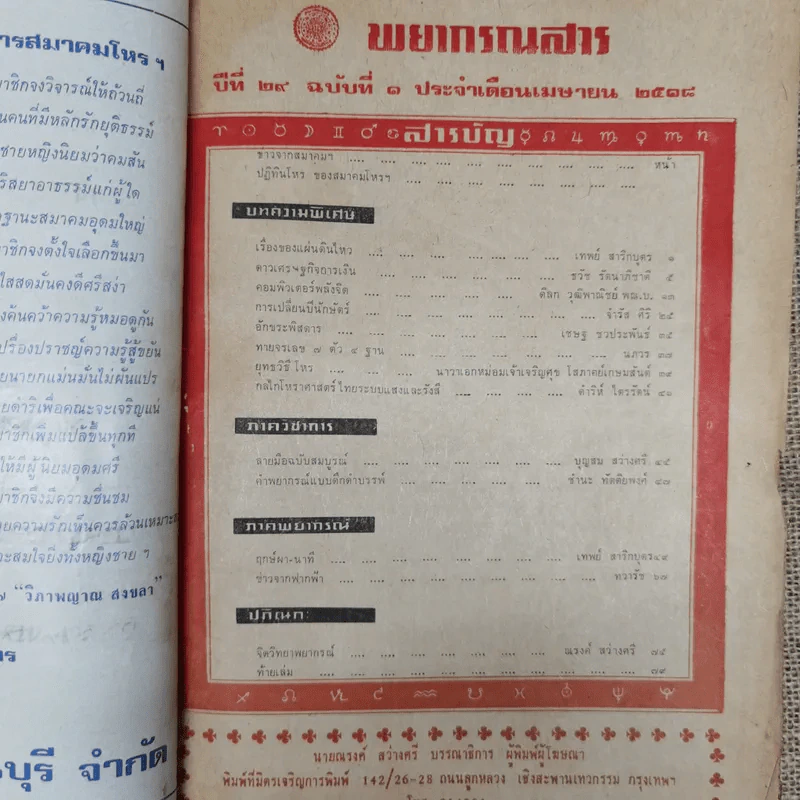 ารสมาคมโหร ฯ
าชิกจงวิจารณ์ให้ถ้วนถี่
นคนที่มีหลักรักยุติธรรม์
ชายหญิงนิยมว่าคมสัน
ริสยาอาธรรม์แก่ผู้ใด
ฐานะสมาคมอุดมใหญ่
าชิกจงตั้งใจเลือกขึ้นมา
ใสสดมั่นคงดีศรีสง่า
งค้นคว้าความรู้หมอดูกัน
ปรื่องปราชญ์ความรู้สู้ขยัน
ยนายกแม่นมั่นไม่ผันแปร
ยดำริเพื่อคณะจะเจริญแน่
าชิกเพิ่มแปล้ขึ้นทุกที
ให้มีผู้นิยมอุดมศรี
าชิกจึ่งมีความชื่นชม
ยความรักเห็นควรล้วนเหมาะส
าะสมใจยิ่งทั้งหญิงชาย ฯ
๗ "วิภาพญาณ สงขลา"
าร
นบุรี จำกัด
พยากรณสาร
ปีที่ ๒๙ ฉบับที่ ๑ ประจำเดือนเมษายน ๒๕๑๘
♈ ☉ ♉ ☽ ♊ ♂ ♋ สารบัญ ☿ ♌ ♃ ♍ ♀ ♏ ♄
ข่าวจากสมาคมฯ .... .... .... .... .... .... .... .... .... หน้า
ปฏิทินโหร ของสมาคมโหรฯ .... .... .... .... .... .... ....
บทความพิเศษ
เรื่องของแผ่นดินไหว .... .... .... .... .... .... .... เทพย์ สาริกบุตร ๑
ดาวเศรษฐกิจการเงิน .... .... .... .... .... .... ธวัช รัตนาภิชาติ ๕
คอมพิวเตอร์พลังจิต .... .... .... .... .... ดิลก วุฒิพาณิชย์ พณ.บ. ๑๓
การเปลี่ยนปีนักษัตร์ .... .... .... .... .... .... .... จำรัส ศิริ ๒๕
อักขระพิสดาร .... .... .... .... .... .... เชษฐ ชวประพันธ์ ๓๕
ทายจรเลข ๗ ตัว ๔ ฐาน .... .... .... .... .... .... .... นภวร ๓๗
ยุทธวิธีโหร .... .... .... นาวาเอกหม่อมเจ้าเจริญศุข โสภาคย์เกษมสันต์ ๓๙
กลไกโหราศาสตร์ไทยระบบแสงและรังสี .... .... .... .... ดำริห์ ไตรรัตน์ ๔๑
ภาควิชาการ
ลายมือฉบับสมบูรณ์ .... .... .... .... .... .... บุญสม สว่างศรี ๔๕
คำพยากรณ์แบบดึกดำบรรพ์ .... .... .... .... .... ชำนะ ทัตติยพงศ์ ๔๗
ภาคพยากรณ์
ฤกษ์ผา-นาที .... .... .... .... .... .... .... เทพย์ สาริกบุตร ๔๙
ข่าวจากฟากฟ้า .... .... .... .... .... .... .... .... ทวารัช ๖๗
ปกิณก
จิตวิทยาพยากรณ์ .... .... .... .... .... .... .... ณรงค์ สว่างศรี ๗๕
ท้ายเล่ม .... .... .... .... .... .... .... .... .... .... ๗๙
♐ ♌ ♑ ♒ ♓
นายณรงค์ สว่างศรี บรรณาธิการ ผู้พิมพ์ผู้โฆษณา
พิมพ์ที่มิตรเจริญการพิมพ์ 142/26-28 ถนนลูกหลวง เชิงสะพานเทวกรรม กรุงเทพฯ